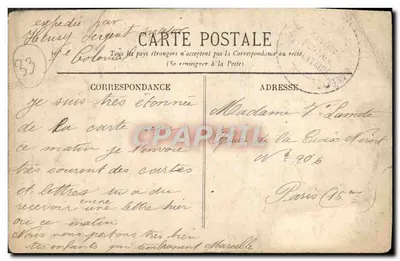 expediée par
Fleury Sergent
7e Colonial
33
CARTE POSTALE
Tous les pays étrangers n'acceptent pas la Correspondance au recto.
(Se renseigner à la Poste)
CORRESPONDANCE
je suis très étonnée
de la carte
ce matin je t'envoie
très souvent des cartes
et lettres tu a du
recevoir encore une lettre hier
ou ce matin
Nous nous portons très bien
tes enfants qui Marcelle
ADRESSE
Madame Vve Lamote
Rue de la Croix Nivert
No 206
Paris (15me)
CARTPARK